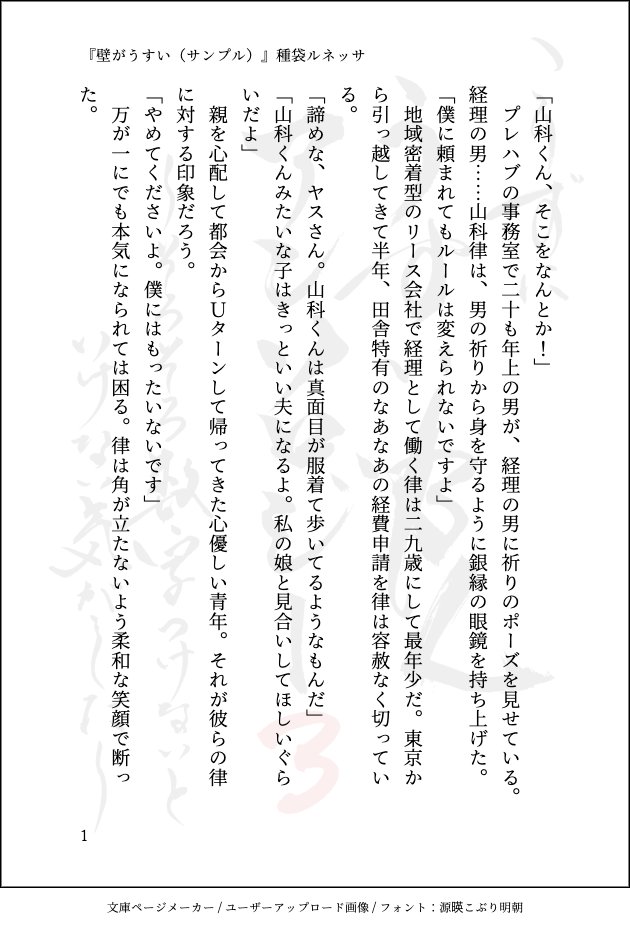 『壁がうすい（サンプル）』種袋ルネッサ
「山科くん、そこをなんとか！」
　プレハブの事務室で二十も年上の男が、経理の男に祈りのポーズを見せている。
経理の男……山科律は、男の祈りから身を守るように銀縁の眼鏡を持ち上げた。
「僕に頼まれてもルールは変えられないですよ」
　地域密着型のリース会社で経理として働く律は二九歳にして最年少だ。東京か
ら引っ越してきて半年、田舎特有のなあなあの経費申請を律は容赦なく切ってい
る。
「諦めな、ヤスさん。山科くんは真面目が服着て歩いてるようなもんだ」
「山科くんみたいな子はきっといい夫になるよ。私の娘と見合いしてほしいぐら
いだよ」
　親を心配して都会からＵターンして帰ってきた心優しい青年。それが彼らの律
に対する印象だろう。
「やめてくださいよ。僕にはもったいないです」
　万が一にでも本気になられては困る。律は角が立たないよう柔和な笑顔で断っ
た。
1
文庫ページメーカー / ユーザーアップロード画像 / フォント：源暎こぶり明朝